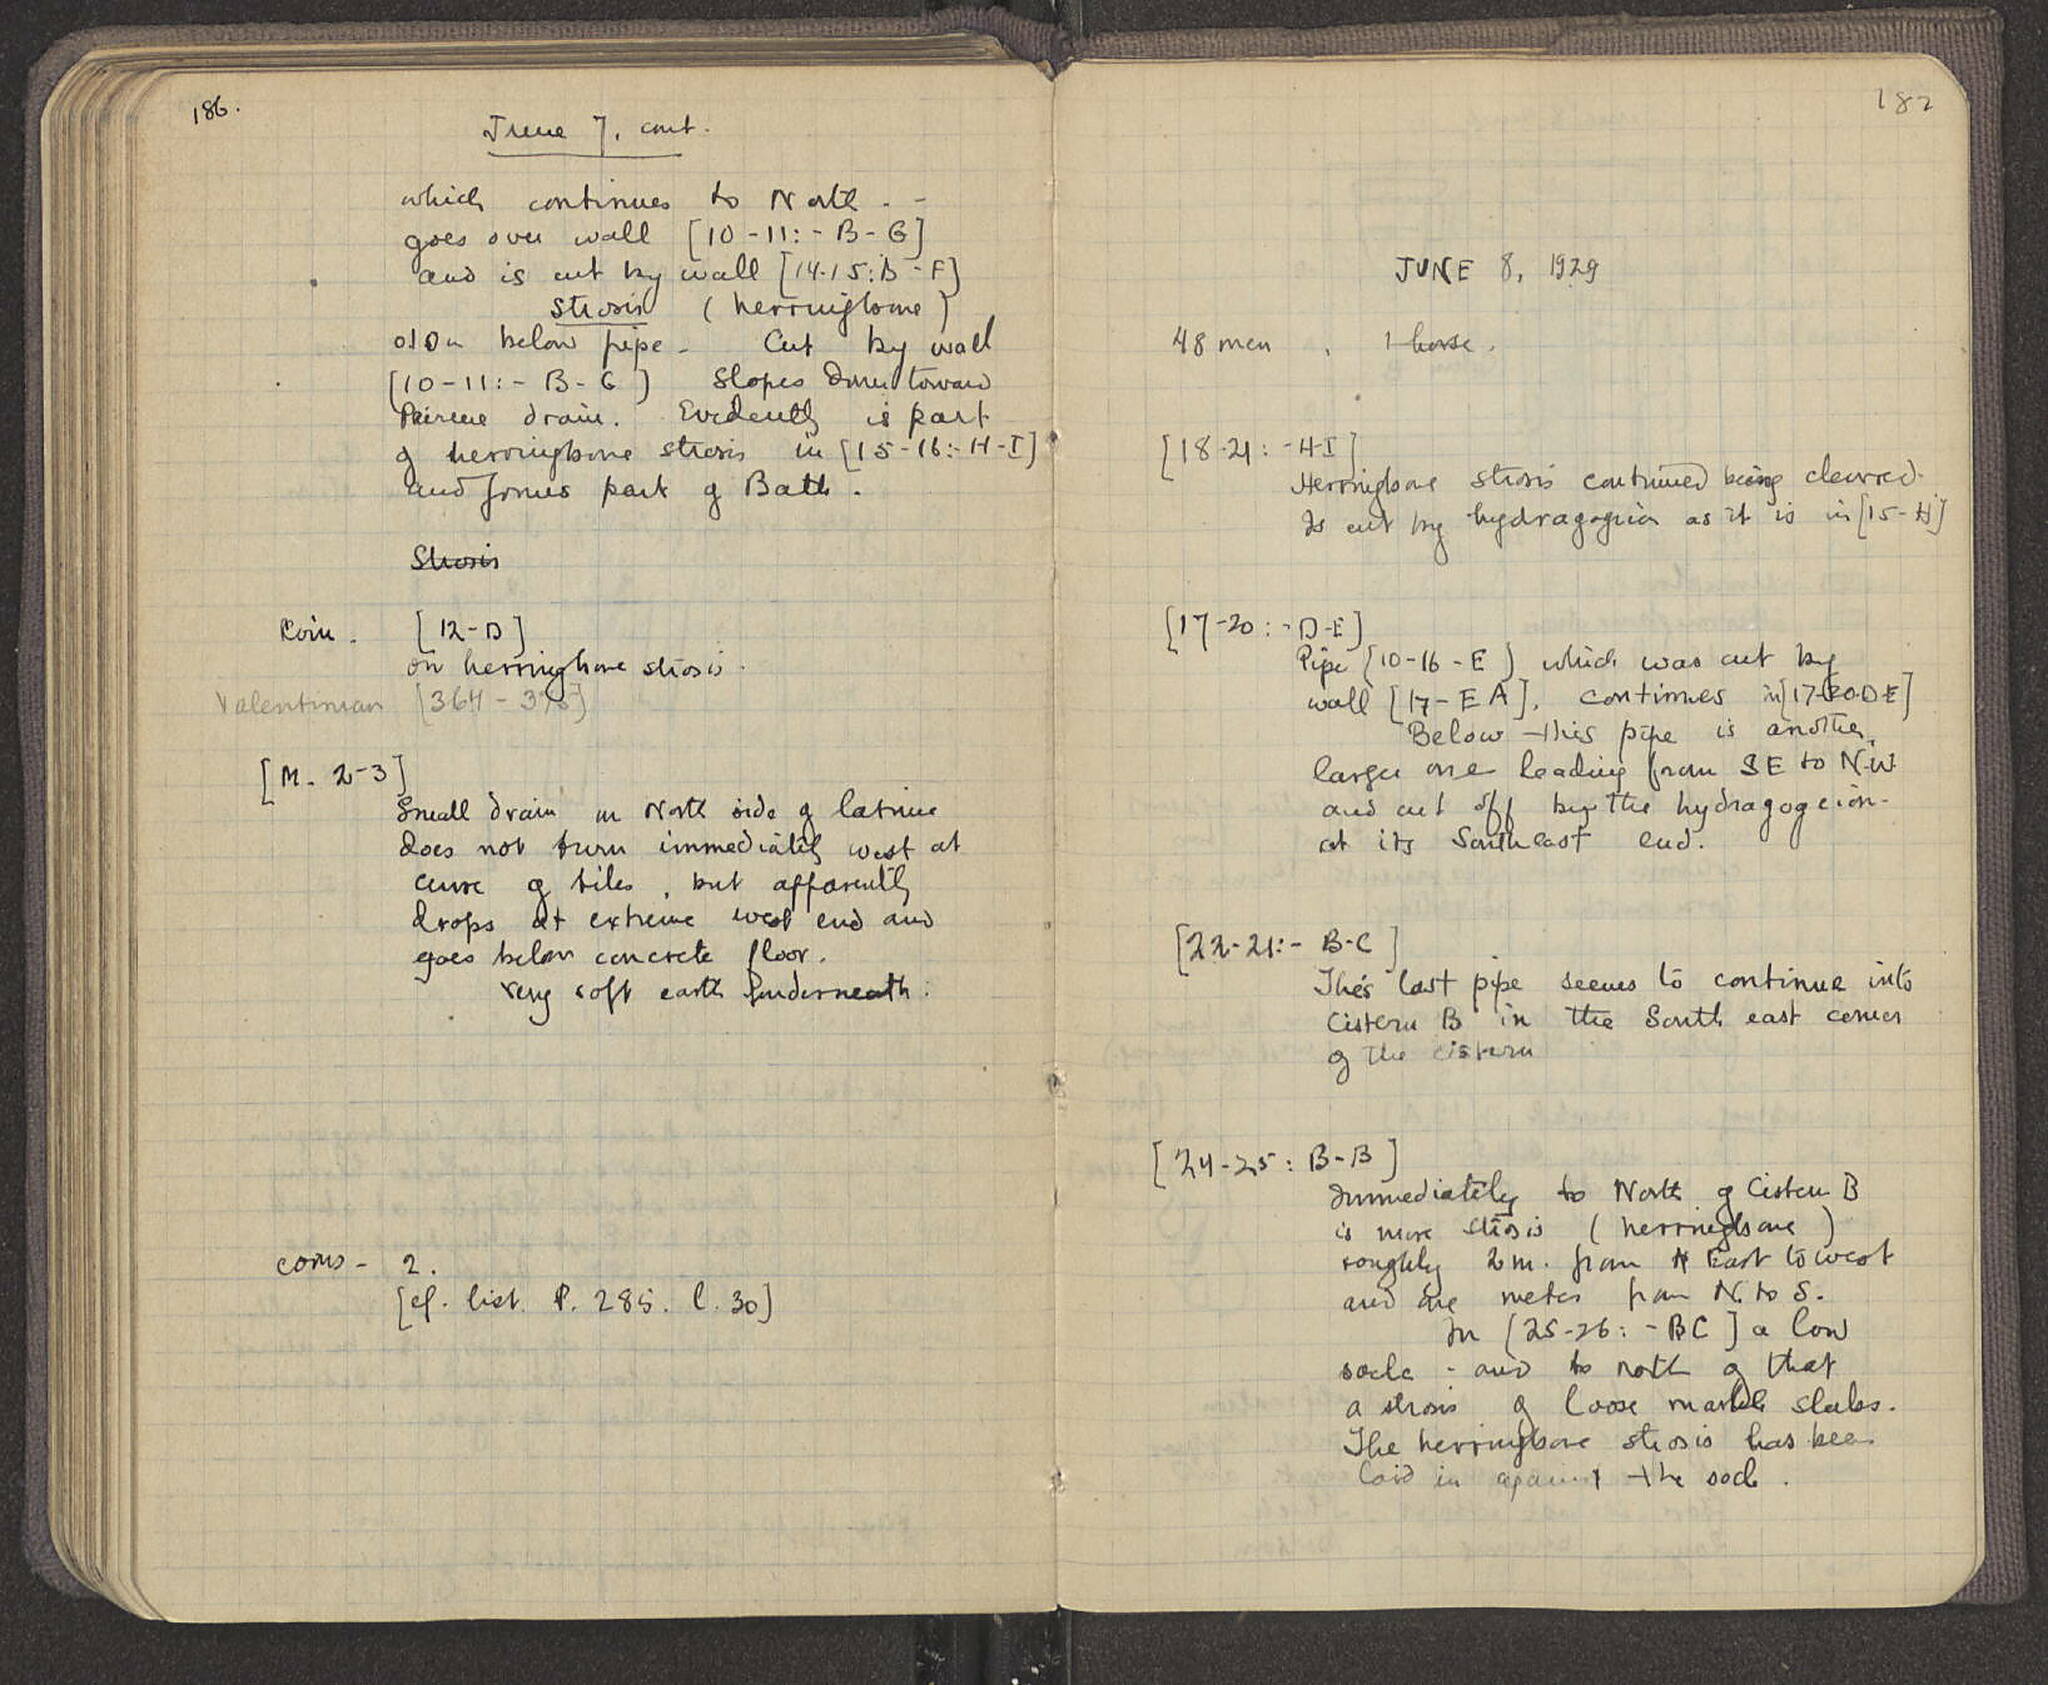 186.
June 7, cont.
which continues to North. -
goes over wall [10-11:-B-G]
and is cut by wall [14-15:B-F]
Strosis (herringbone)
below pipe - Cut by wall
[10-11:-B-G] Slopes down toward
Peirene drain. Evidently is part
of herringbone strosis in [15-16:-H-I]
and forms part of Bath.
Strosis
Coin. [12-D]
on herringbone strosis.
Valentinian [364-375]
[M. 2-3]
Small drain on North side of latrine
does not turn immediately west at
curve of tiles, but apparently
drops at extreme west end and
goes below concrete floor.
very soft earth underneath.
coins - 2.
[cf. list. P. 285. l. 30]
187
JUNE 8, 1929
48 men, 1 horse.
[18-21:-H-I]
Herringbone strosis continued being cleared.
Is cut by hydragogeion as it is in [15-H]
[17-20:-D-E]
Pipe [10-16-E] which was cut by
wall [17-EA], continues in [17-20-D-E]
Below this pipe is another,
larger one leading from SE to N.W
and cut off by the hydragogeion-
at its Southeast end.
[22-21:- B-C]
This last pipe seems to continue into
Cistern B in the South east corner
of the cistern
[24-25: B-B]
Immediately to North of Cistern B
is more strosis (herringbone)
roughly 2m. from East to west
and one meter from N. to S.
In [25-26:-BC] a low
socle - and to north of that
a strosis of loose marble slabs.
The herringbone strosis has been
laid in against the socle.